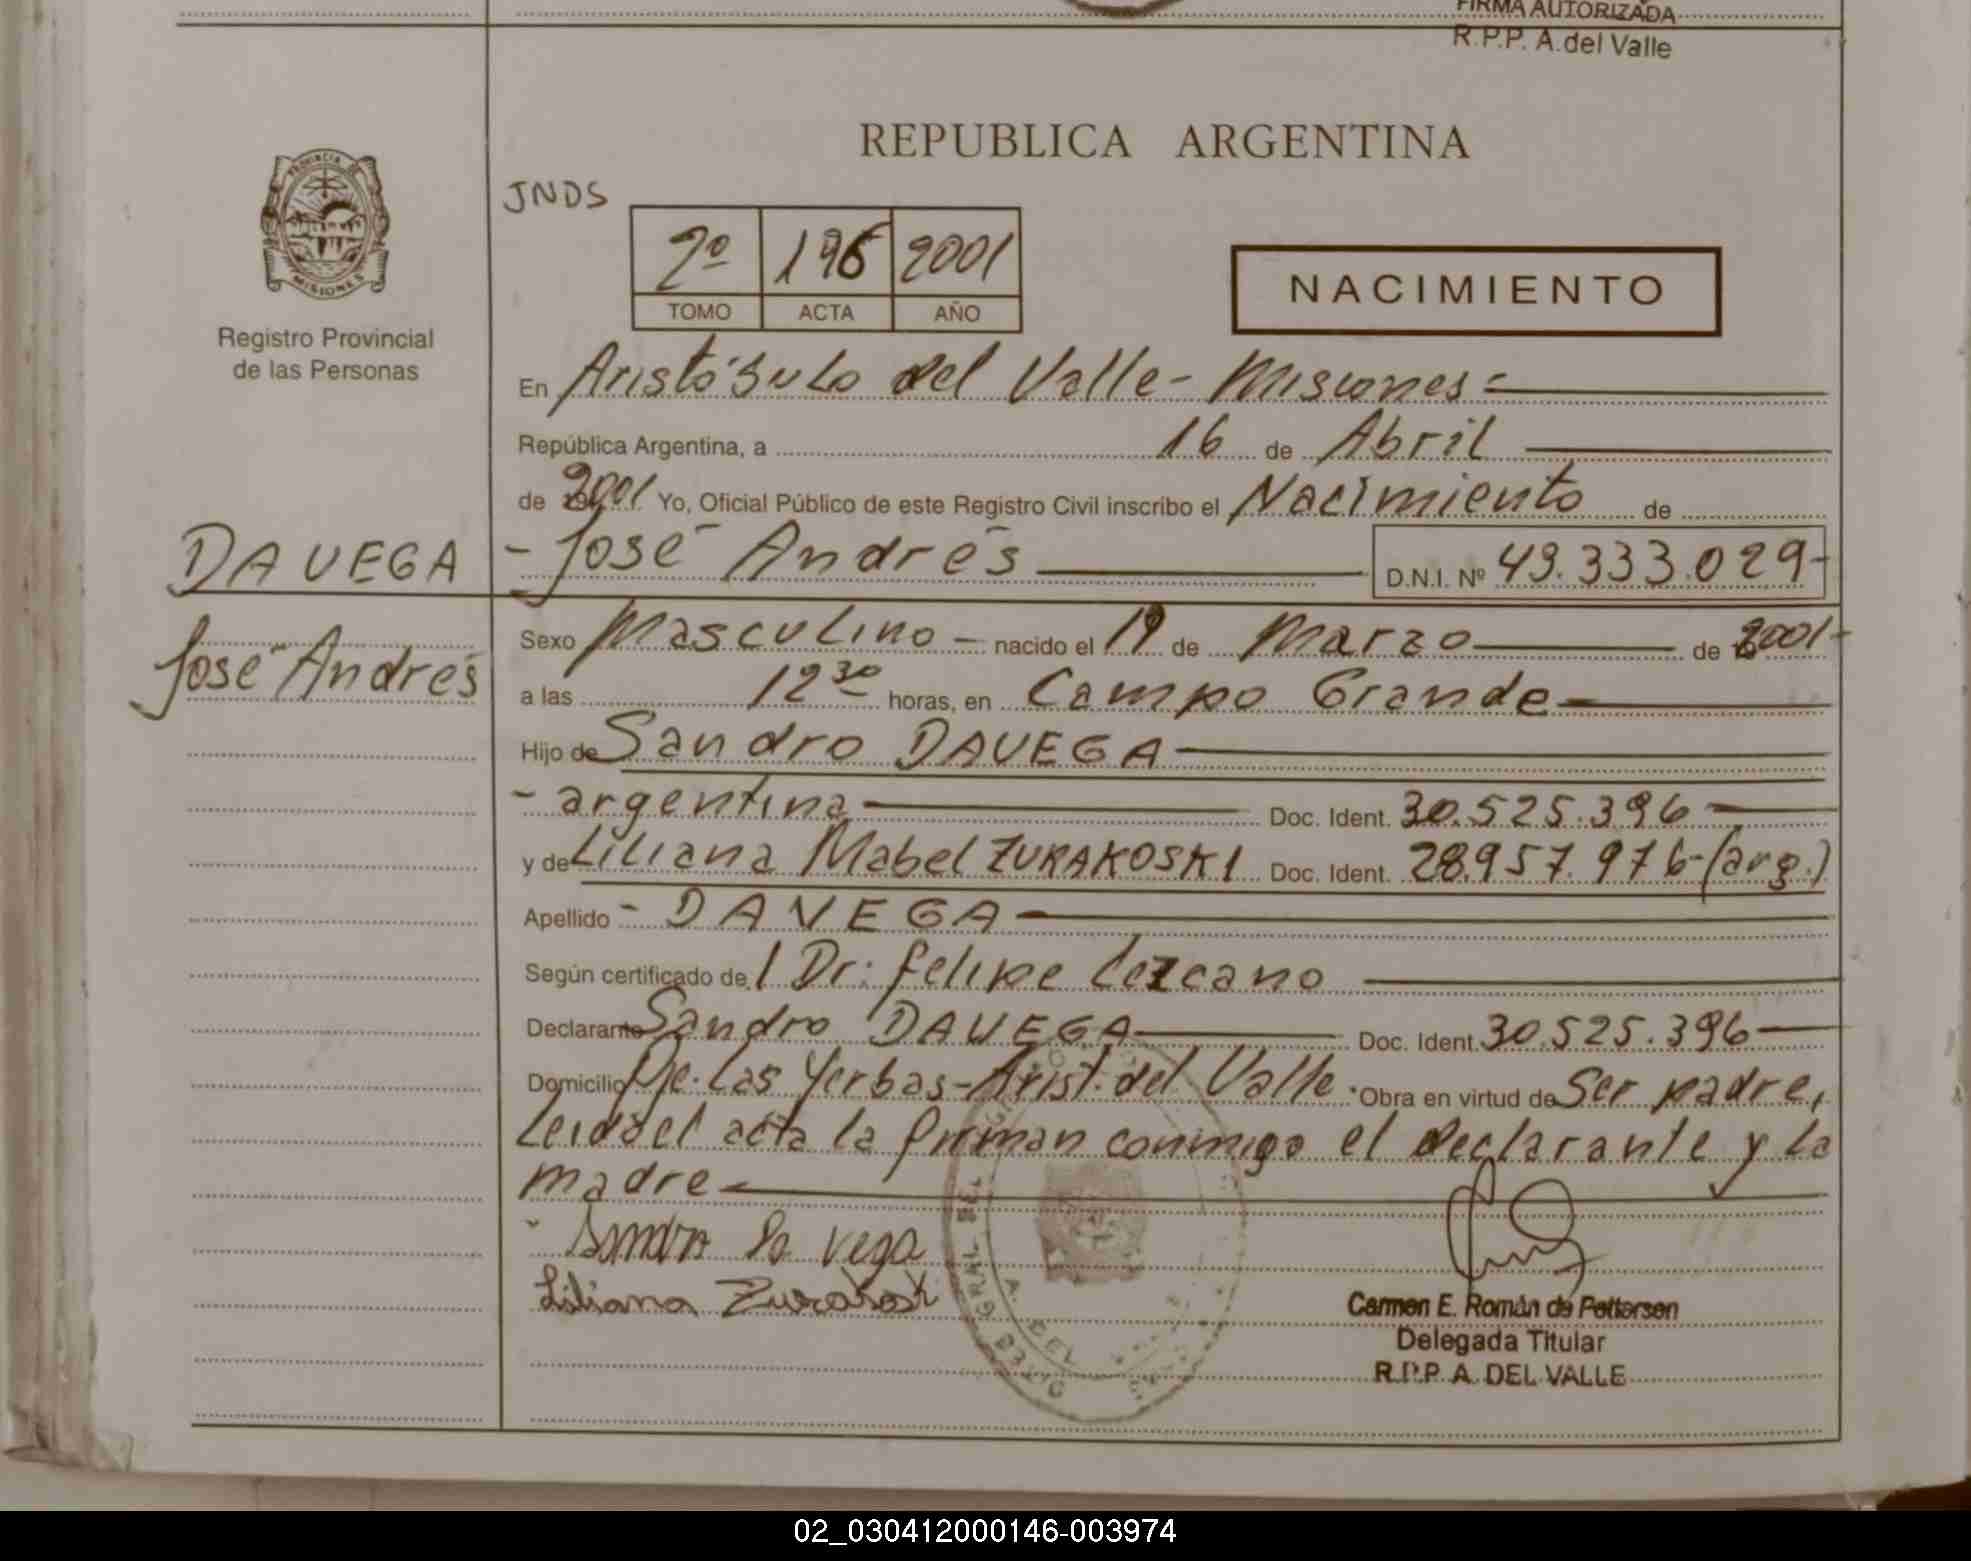 FIRMA AUTORIZADA
R.P.P. A.del Valle
PROVINCIA DE
MISIONES
Registro Provincial
de las Personas
REPUBLICA ARGENTINA
JNDS
2º 196 2001
TOMO ACTA AÑO
NACIMIENTO
En Aristóbulo del Valle - Misiones =
República Argentina, a 16 de Abril
de 2001 Yo, Oficial Público de este Registro Civil inscribo el Nacimiento de
DAVEGA - José Andrés D.N.I. Nº 43.333.029-
José Andrés
Sexo Masculino - nacido el 19 de Marzo de 2001-
a las 12 30 horas, en Campo Grande
Hijo de Sandro DAVEGA
- argentina Doc. Ident. 30.525.396
y de Liliana Mabel ZURAKOSKI Doc. Ident. 28.957.976-(arg.)
Apellido - DAVEGA
Según certificado del Dr: Felipe Lezcano
Declarante Sandro DAVEGA Doc. Ident. 30.525.396
Domicilio Pje. Las Yerbas-Arist. del Valle. Obra en virtud de Ser padre,
Leída el acta la firman conmigo el declarante y la
madre
Sandro Da Vega
Liliana Zurakoski
A. DEL
Carmen E. Román de Pettersen
Delegada Titular
R.P.P. A. DEL VALLE
02_030412000146-003974